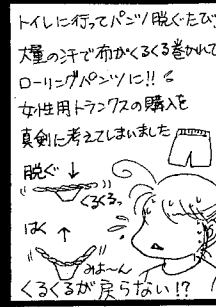 トイレに行ってパンツ脱ぐたび
大量の汗で布がくるくる巻かれて
ローリングパンツに!!
女性用トランクスの購入を
真剣に考えてしまいました
脱ぐ ↓
くるくるっ
はく ↑
みょ〜ん
くるくるが戻らない!?